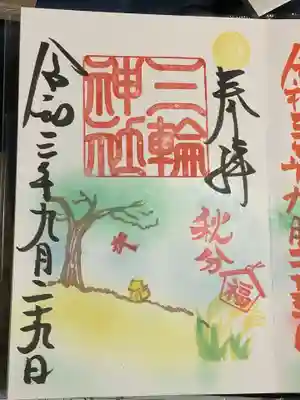 奉拝
三輪
神社
秋分
福
水
令和三年九月二十九日